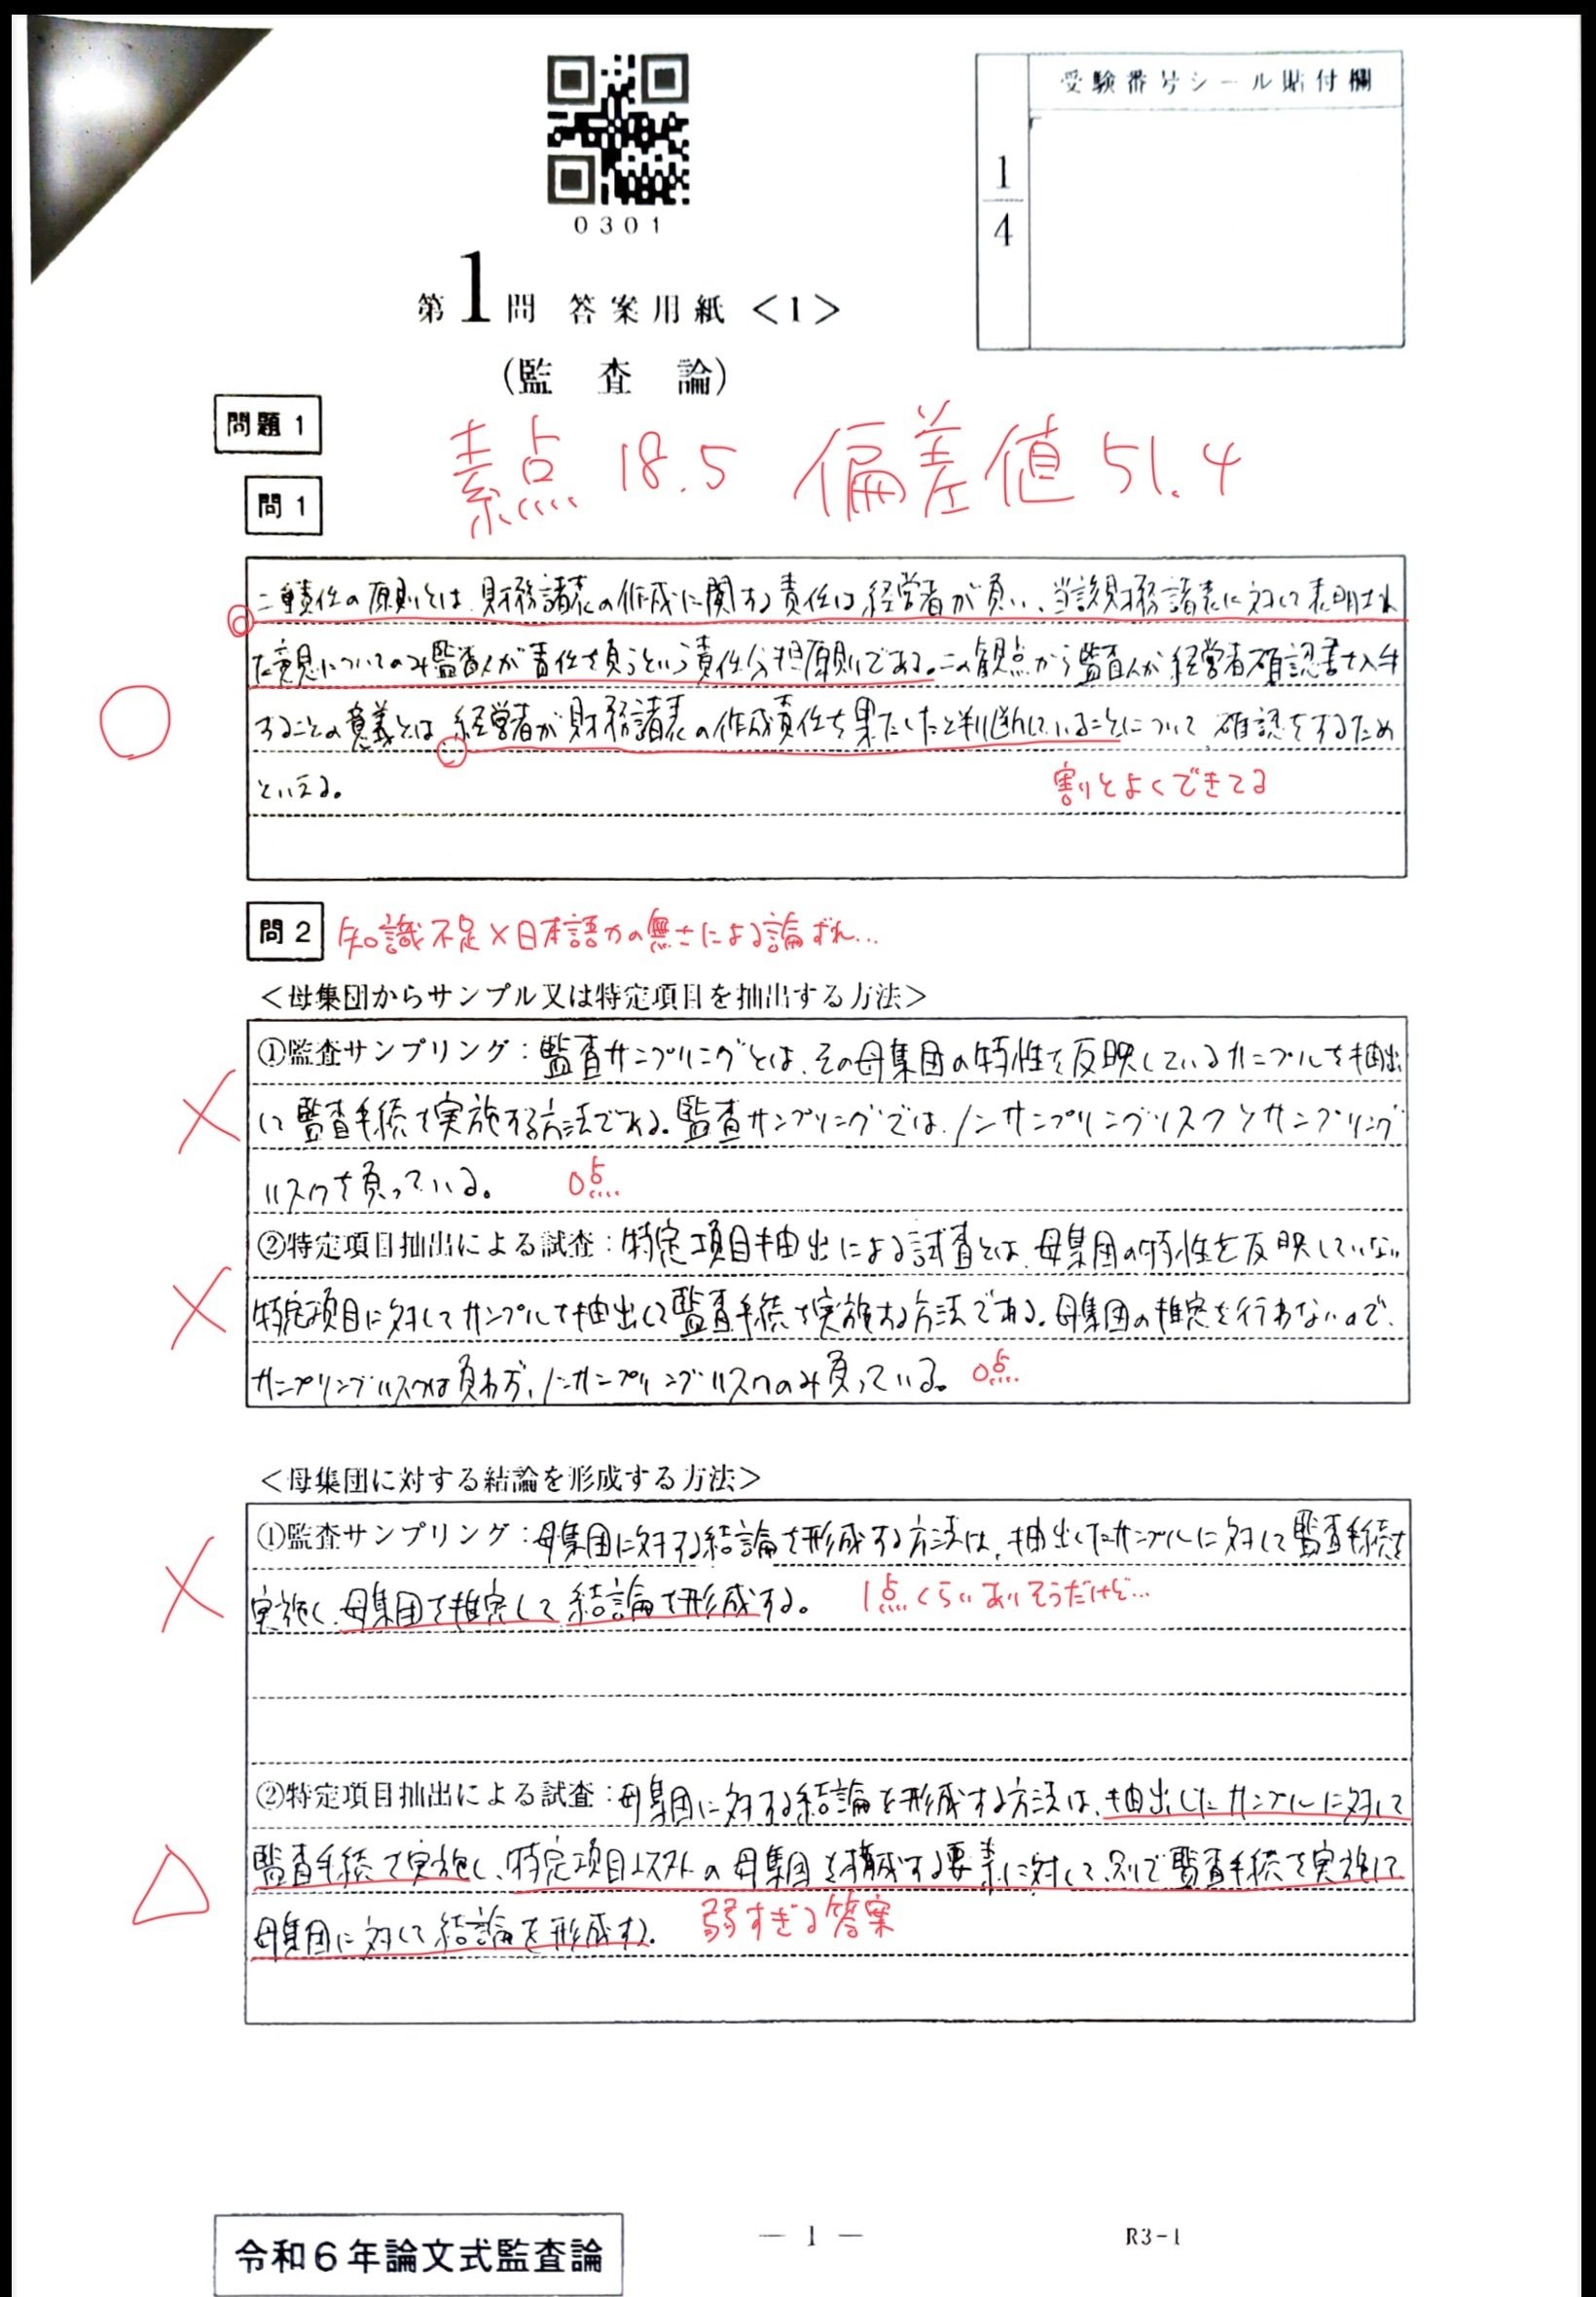 0301
受験番号シール貼付欄
1
4
第1問 答案用紙<1>
(監 査 論)
問題1
素点 18.5 偏差値 51.4
問1
二重責任の原則とは、財務諸表の作成に関する責任は経営者が負い、当該財務諸表に対して表明され
た意見についてのみ監査人が責任を負うという責任分担原則である。この観点から監査人が経営者確認書を入手
することの意義とは、経営者が財務諸表の作成責任を果たしたと判断していることについて、確認をするため
といえる。
割とよくできてる
問2 知識不足×日本語力の無さによる論ずれ…
<母集団からサンプル又は特定項目を抽出する方法>
①監査サンプリング:監査サンプリングとは、その母集団の特性を反映しているサンプルを抽出
して監査手続を実施する方法である。監査サンプリングでは、ノンサンプリングリスクとサンプリング
リスクを負っている。 0点
②特定項目抽出による試査:特定項目抽出による試査とは、母集団の特性を反映していない
特定項目に対してサンプルを抽出して監査手続を実施する方法である。母集団の推定を行わないので、
サンプリングリスクは負わず、ノンサンプリングリスクのみ負っている。 0点
<母集団に対する結論を形成する方法>
①監査サンプリング:母集団に対する結論を形成する方法は、抽出したサンプルに対して監査手続を
実施し、母集団を推定して、結論を形成する。 1点くらいありそうだけど…
②特定項目抽出による試査:母集団に対する結論を形成する方法は、抽出したサンプルに対して
監査手続を実施し、特定項目以外の母集団を構成する要素に対して、別で監査手続を実施して
母集団に対して結論を形成する。 弱すぎる答案
令和6年論文式監査論
— 1 —
R3-1